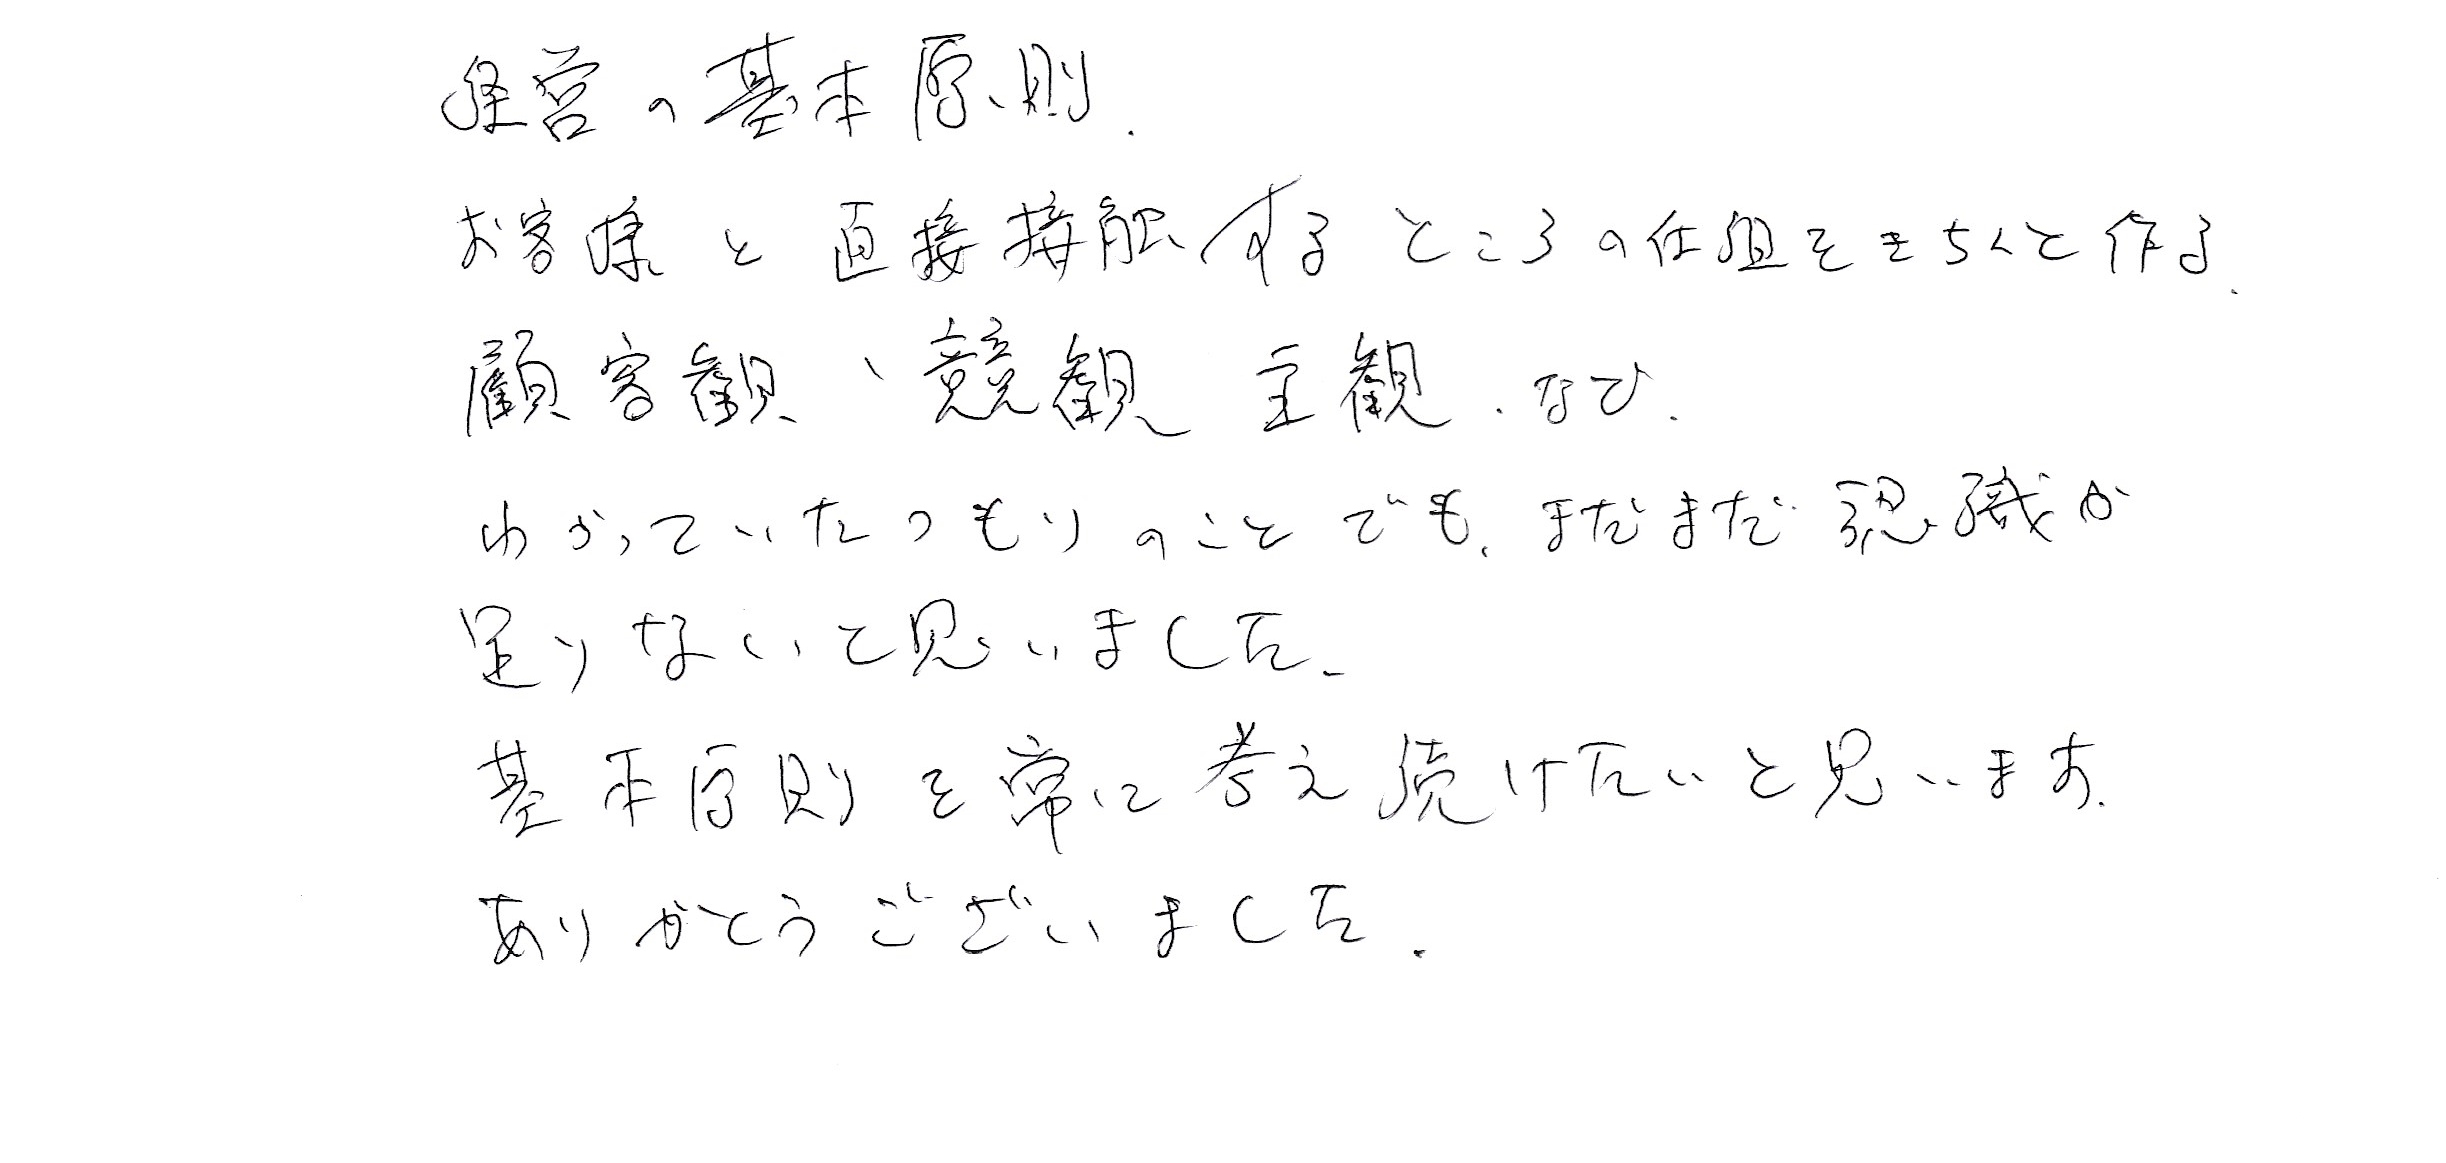 経営の基本原則.
お客様と直接接触するところの仕組をきちんと作る.
顧客観、競観 主観.など.
わかっていたつもりのことでも、まだまだ認識が
足りないと思いました.
基本原則を常に考え続けたいと思います.
ありがとうございました.